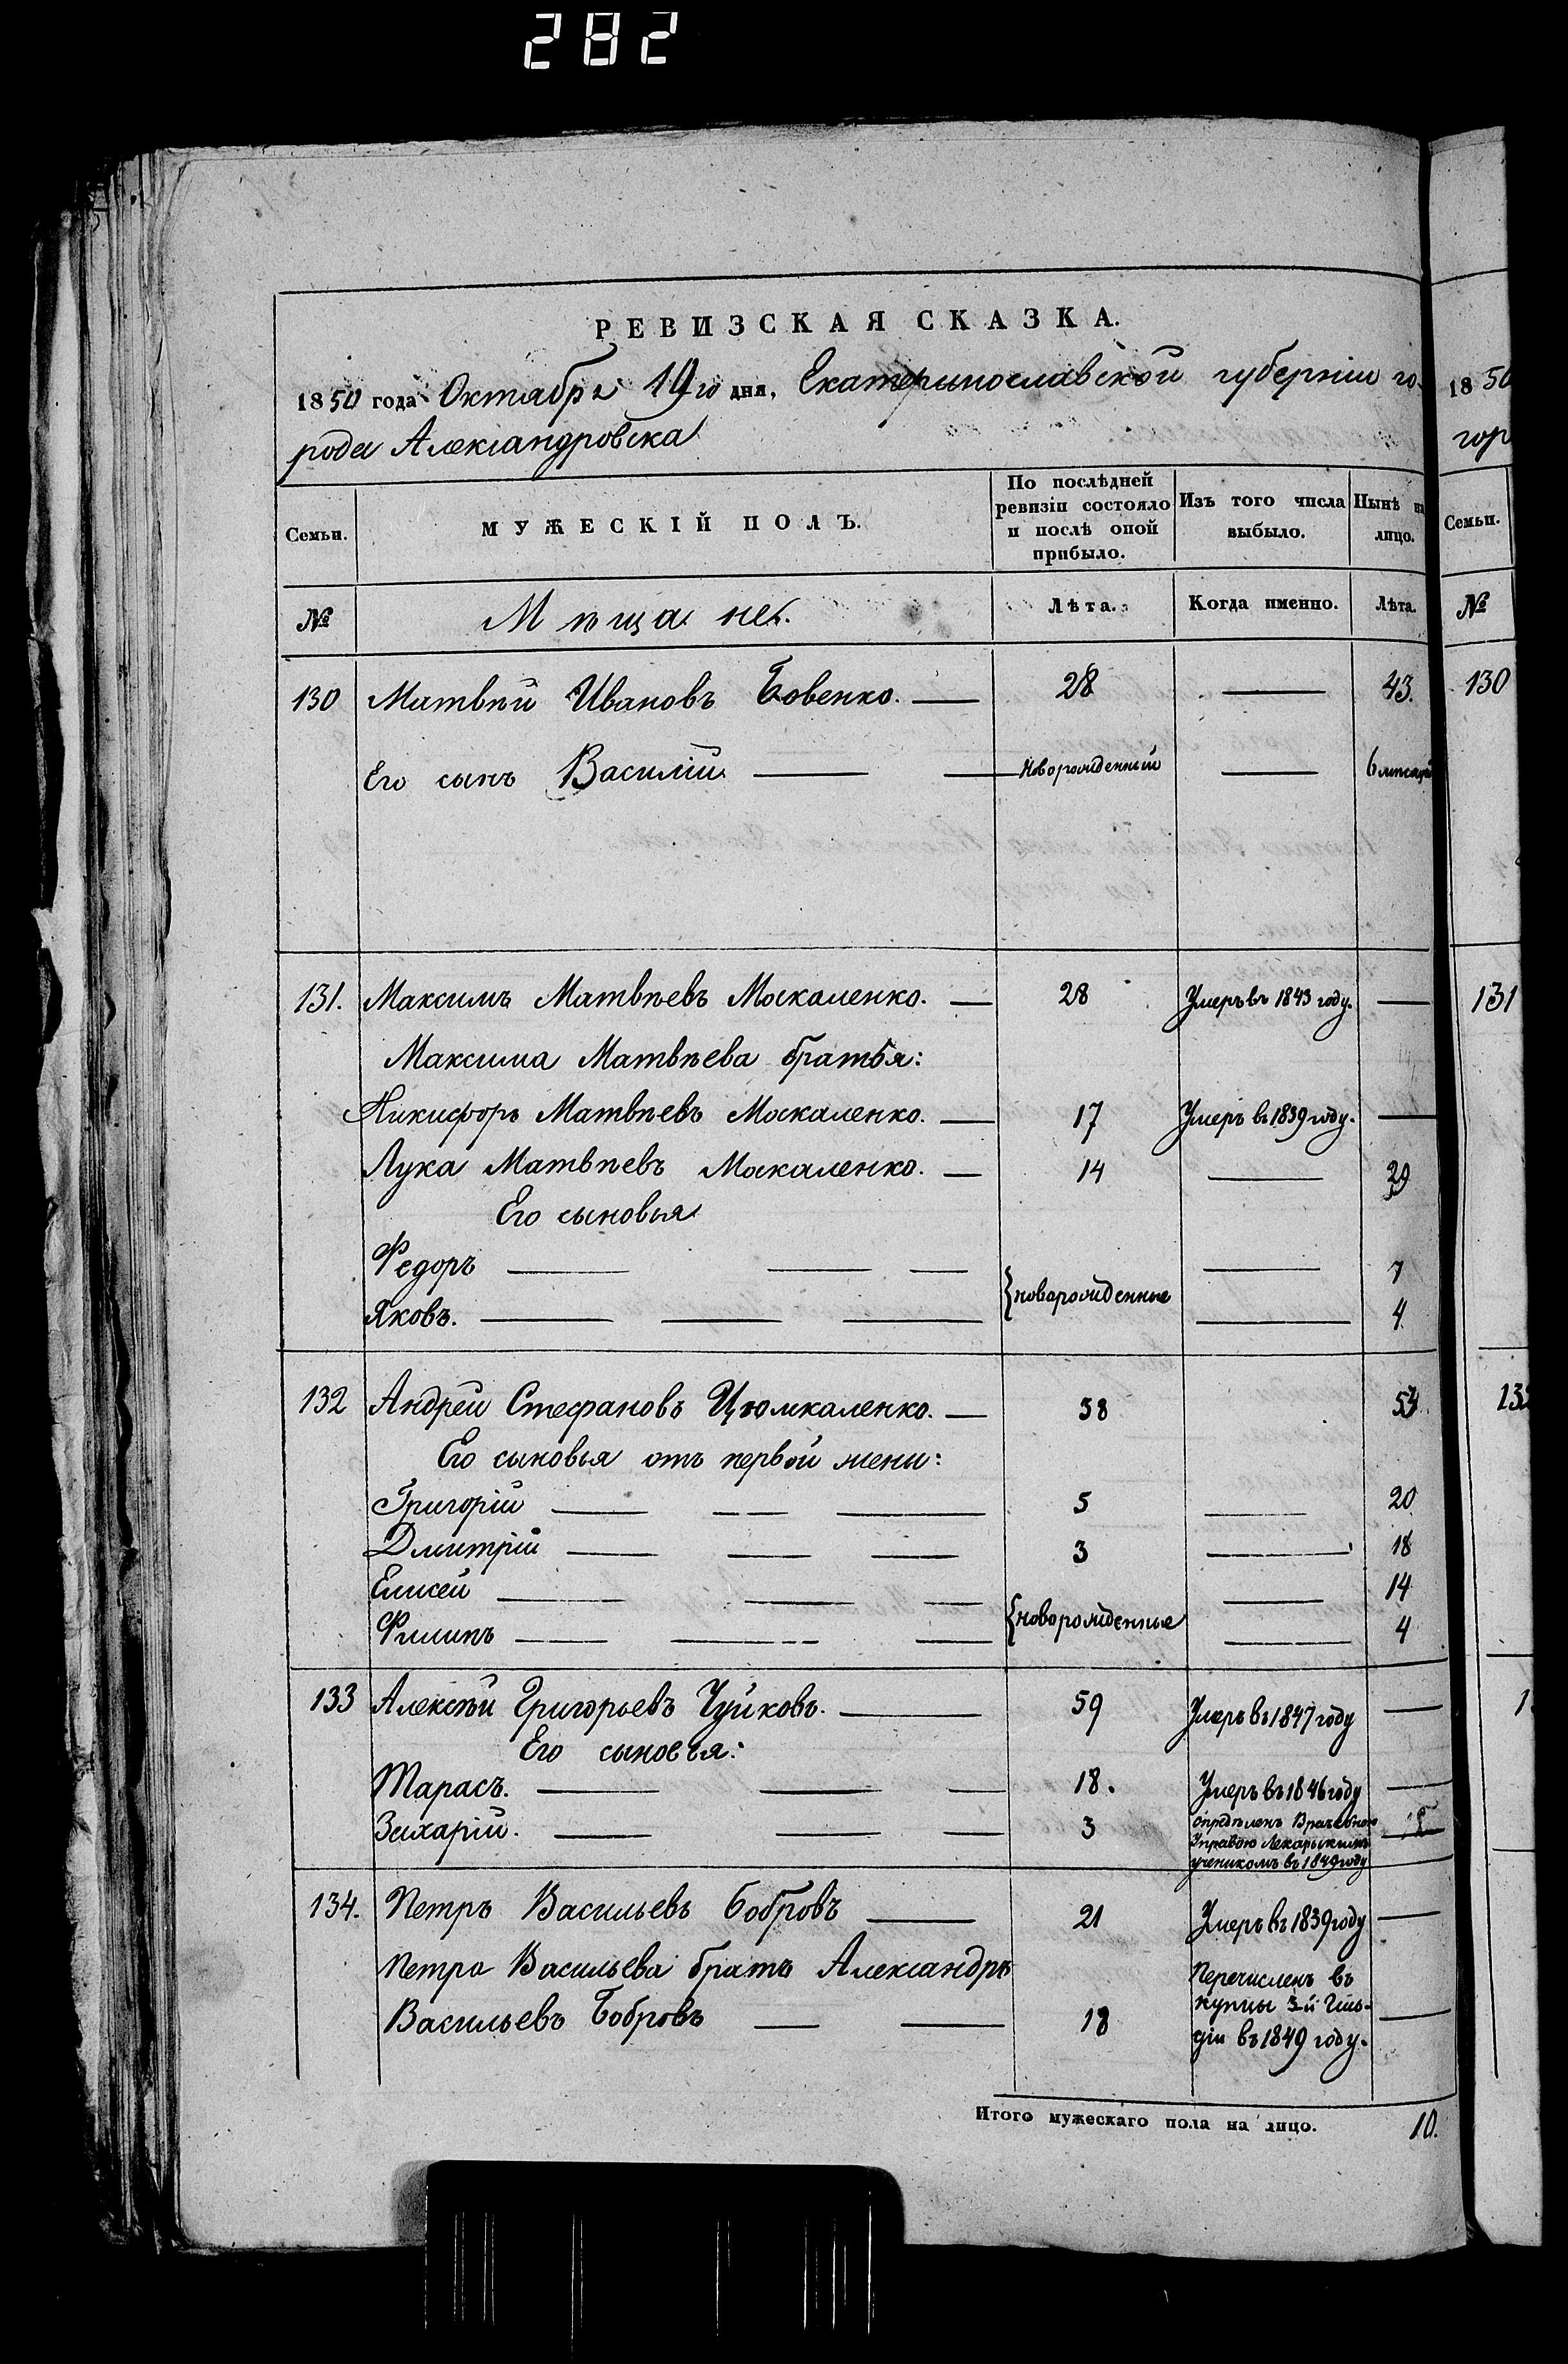 282
РЕВИЗСКАЯ СКАЗКА.
1850 года Октября 19го дня, Екатеринославской губерніи го-
рода Александровска
Семьи. МУЖЕСКІЙ ПОЛЪ. По послѣдней ревизіи состояло и послѣ оной прибыло. Изъ того числа выбыло. Нынѣ на лицо.
№ Мѣщане. Лѣта. Когда именно. Лѣта.
130 Матвѣй Ивановъ Бовенко. — 28 — 43.
Его сынъ Василій — Новорожденный — 6 мѣсяцей
131. Максимъ Матвѣевъ Москаленко. — 28 Умеръ въ 1843 году. —
Максима Матвѣева братья:
Никифоръ Матвѣевъ Москаленко. — 17 Умеръ въ 1839 году. —
Лука Матвѣевъ Москаленко. — 14 — 29
Его сыновья
Федоръ — — 7
Яковъ. — {новорожденные — 4
132 Андрей Стефановъ Цюмкаленко. — 38 53
Его сыновья отъ первой жены:
Григорій — 5 — 20
Дмитрій — 3 — 18
Елисей — — 14
Филипъ — {новорожденные — 4
133 Алексѣй Григорьевъ Чуйковъ. — 59 Умеръ въ 1847 году —
Его сыновья:
Тарасъ. — 18. Умеръ въ 1846 году —
Захарій. — 3 опредѣленъ Врачебною
Управою Лекарскимъ
ученикомъ въ 1849 году —
134. Петръ Васильевъ Бобровъ — 21 Умеръ въ 1839 году —
Петра Васильева братъ Александръ
Васильевъ Бобровъ — 18 Перечисленъ въ
купцы 3-й Гиль-
діи въ 1849 году. —
Итого мужескаго пола на лицо. 10.
18 50
гор
Семьи.
№
130
131
132